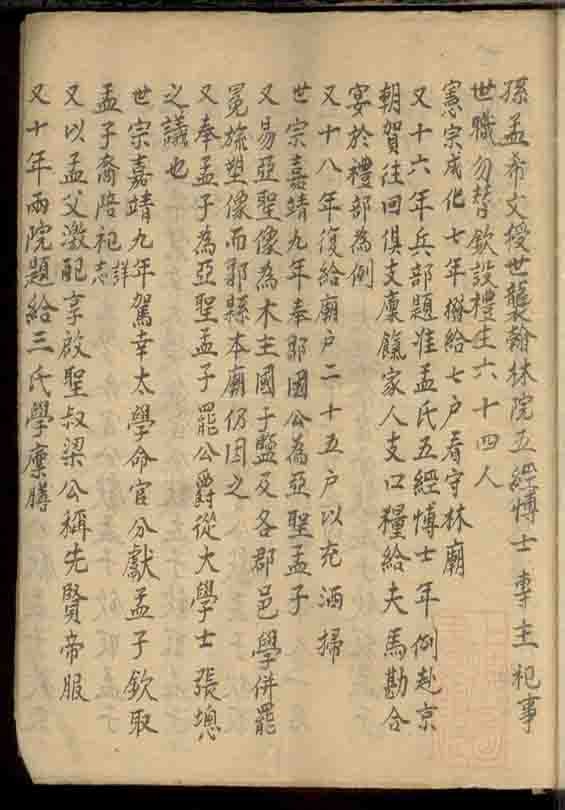 孫孟希文授世襲翰林院五經愽士専主祀事
世職勿替欽設禮生六十四人
憲宗成化七年撥給七户看守林廟
又十六年兵部題准孟氏五經愽士年例赴京
朝賀往回俱支廩餼家人支口糧給夫馬勘合
宴於禮部為例
又十八年復給廟户二十五户以充洒掃
世宗嘉靖九年奉鄒國公為亞聖孟子
又易亞聖像為木主國子監及各郡邑學併罷
冕旒塑像而鄒縣本廟仍因之
又奉孟子為亞聖孟子罷公爵從大學士張璁
之議也
世宗嘉靖九年駕幸太學命官分獻孟子欽取
孟子裔陪祀詳志
又以孟父激配享啟聖叔梁公稱先賢帝服
又十年兩院題給三氏學廩膳